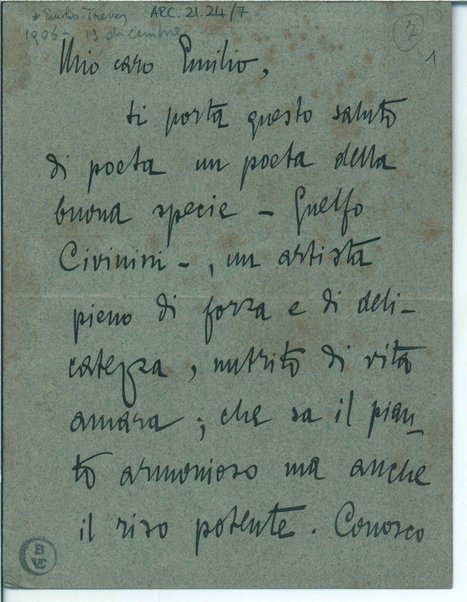 a Emilio Treves ARC. 21.24/7
1906 - 13 dicembre 7
1
Mio caro Emilio,
ti porta questo saluto
di poeta un poeta della
buona specie - Guelfo
Civinini -, un artista
pieno di forza e di deli-
catezza, nutrito di vita
amara; che sa il pian-
to armonioso ma anche
il riso potente. Conosco
B
VE